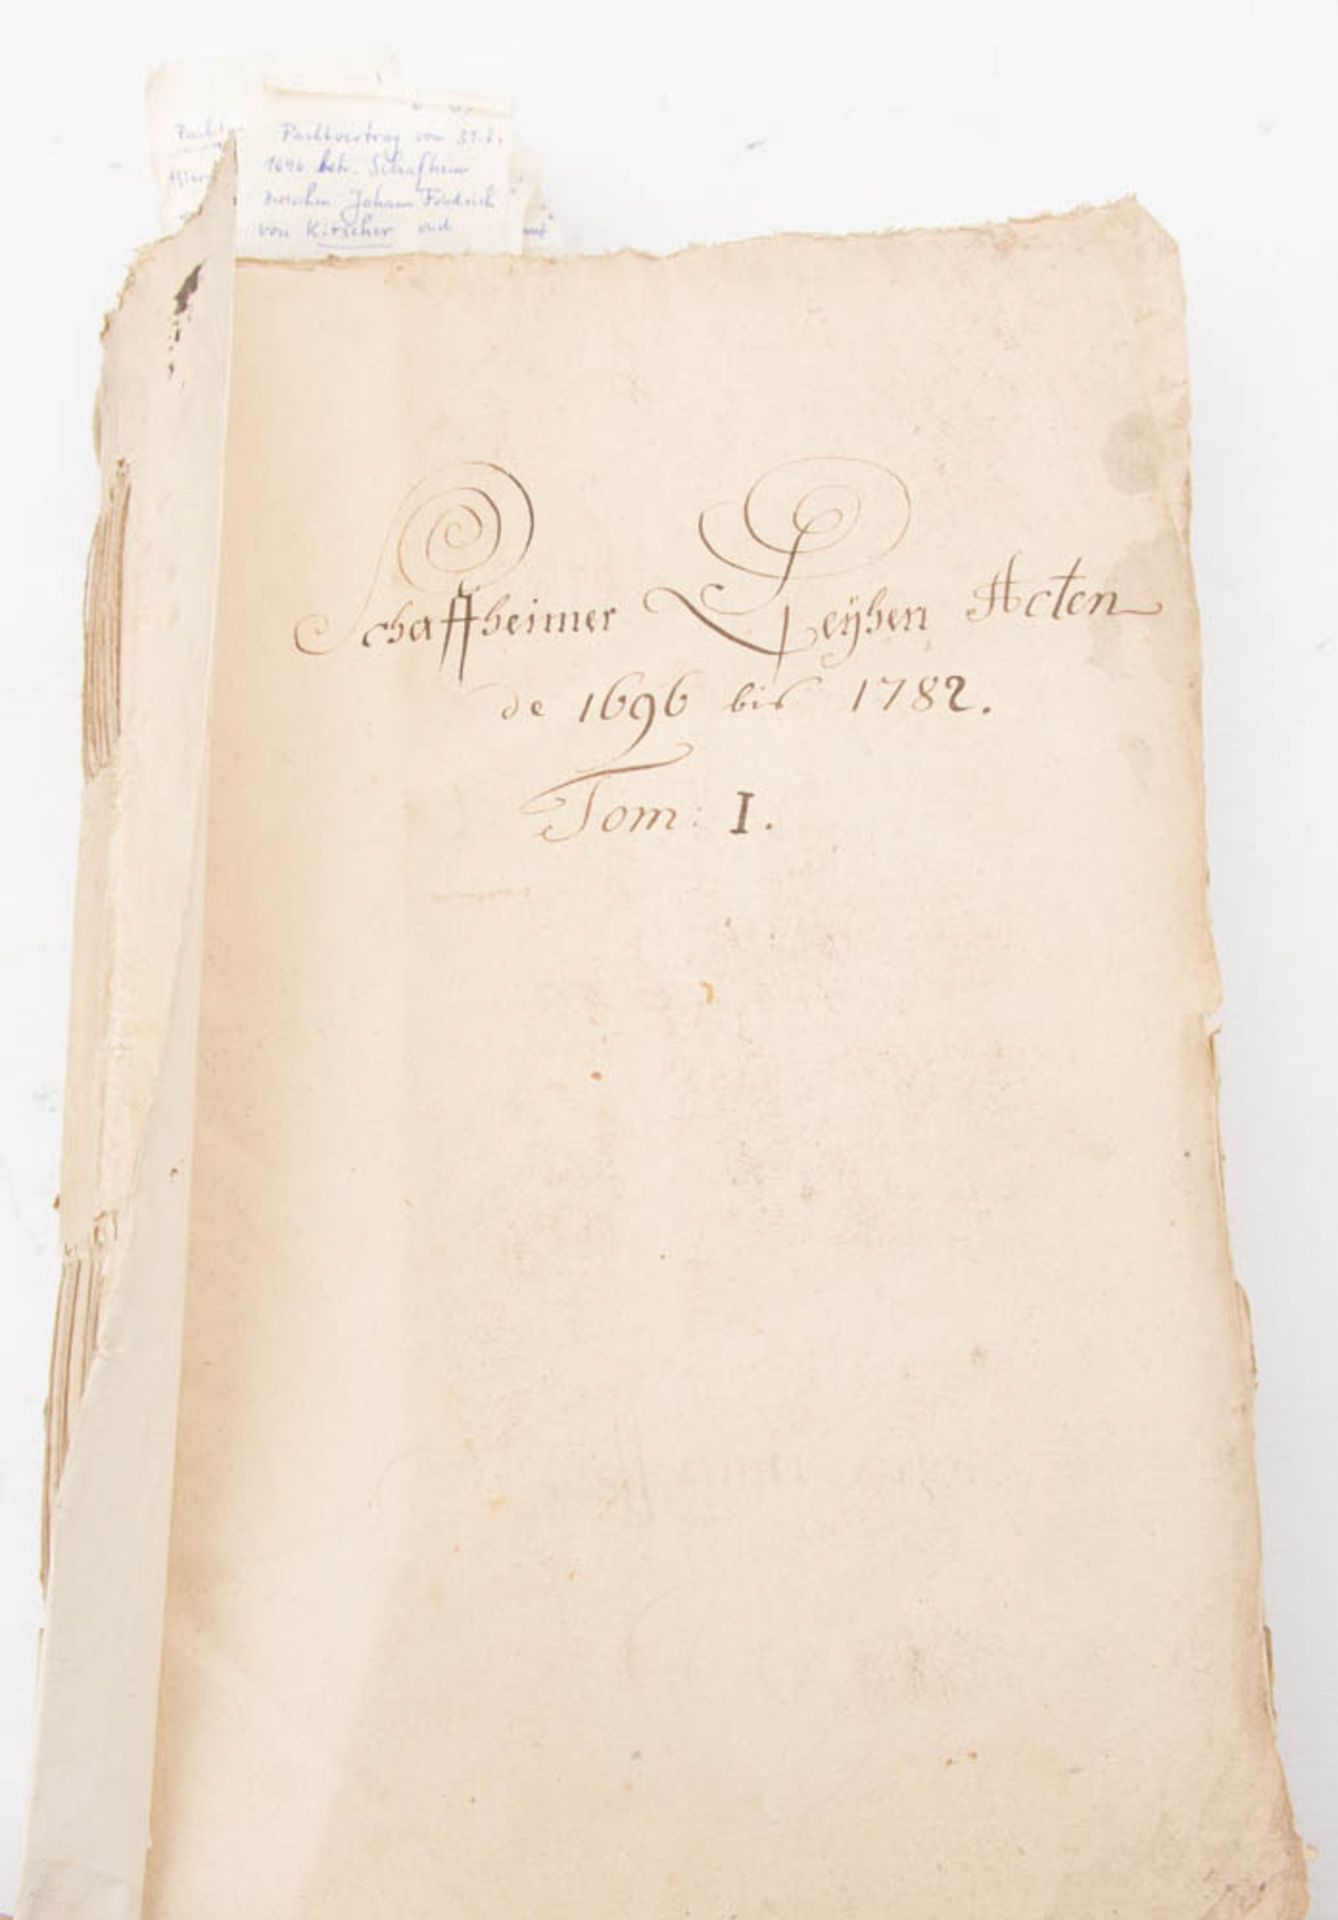 Pachtvertrag vom 31.7.
1696 betr. Schafheim
zwischen Johann Friedrich
von Kitscher und
Schaffheimer Leÿhen Acten
de 1696 bis 1782.
Tom: I.